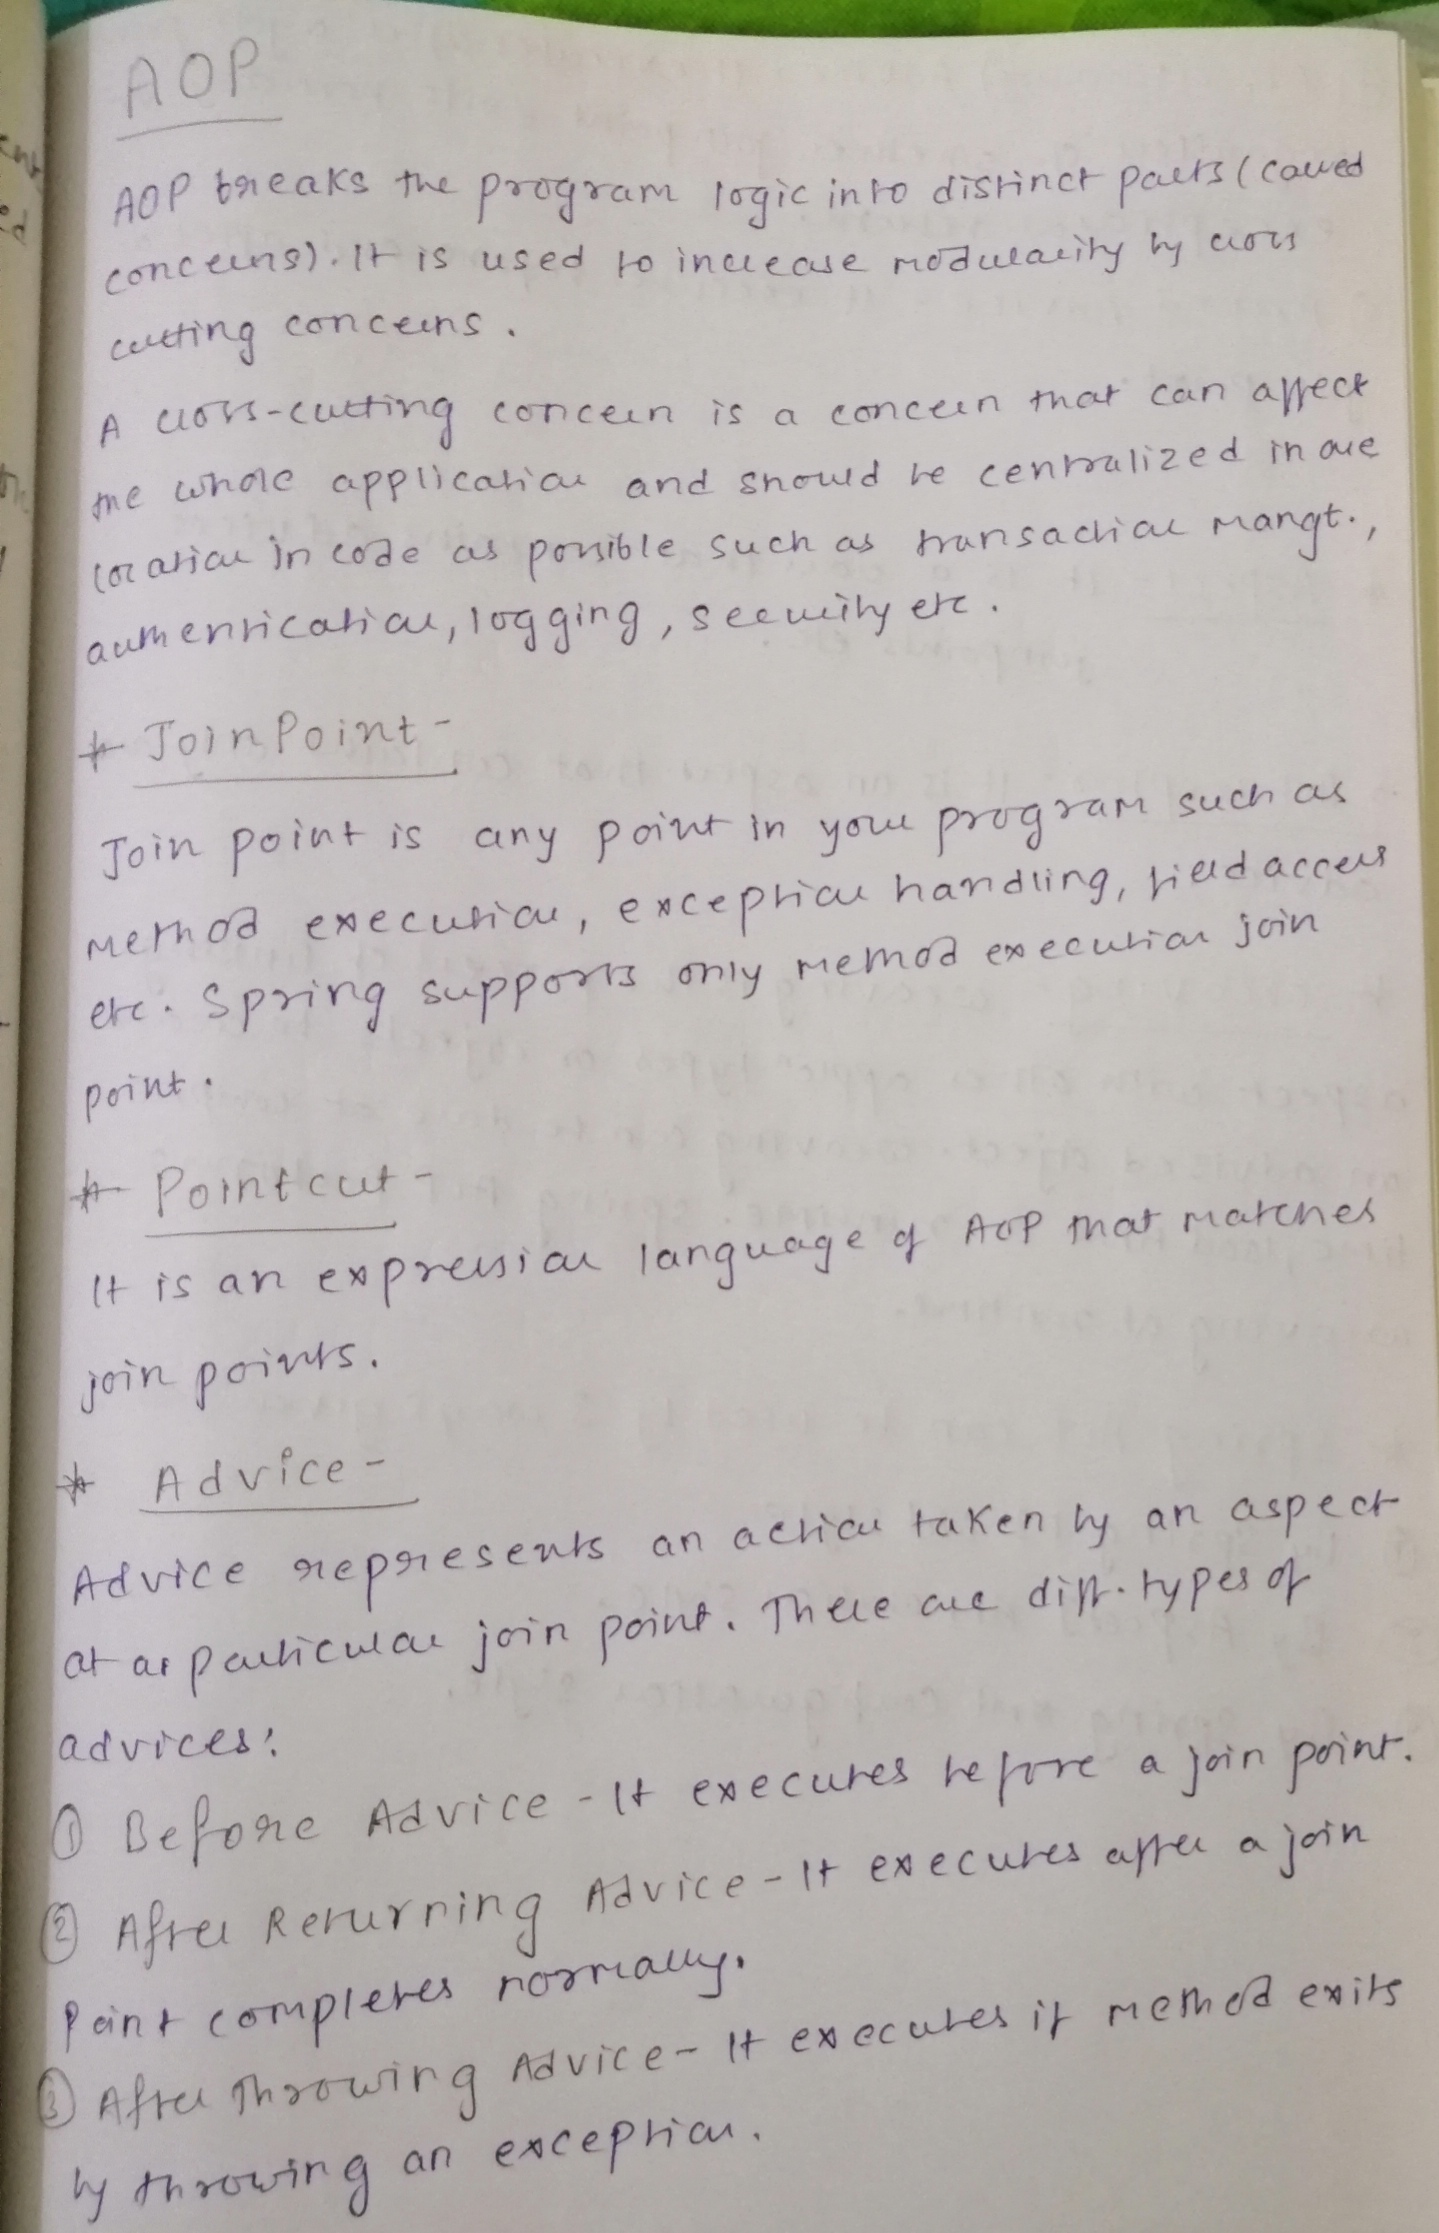 AOP
AOP breaks the program logic into distinct parts (called
concerns). It is used to increase modularity by cross
cutting concerns.
A cross-cutting concern is a concern that can affect
the whole application and should be centralized in one
location in code as possible such as transaction mangt.,
authentication, logging, security etc.
* JoinPoint -
Join point is any point in your program such as
method execution, exception handling, field access
etc. Spring supports only method execution join
point.
* Pointcut -
It is an expression language of AOP that matches
join points.
* Advice -
Advice represents an action taken by an aspect
at a particular join point. There are diff. types of
advices:
① Before Advice - It executes before a join point.
② After Returning Advice - It executes after a join
point completes normally.
③ After Throwing Advice - It executes if method exits
by throwing an exception.